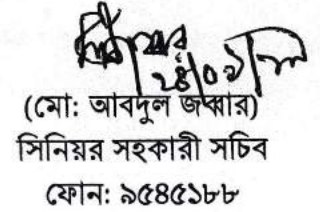 (মো: আবদুল জব্বার)
সিনিয়র সহকারী সচিব
ফোন: ৯৫৪৫১৮৮